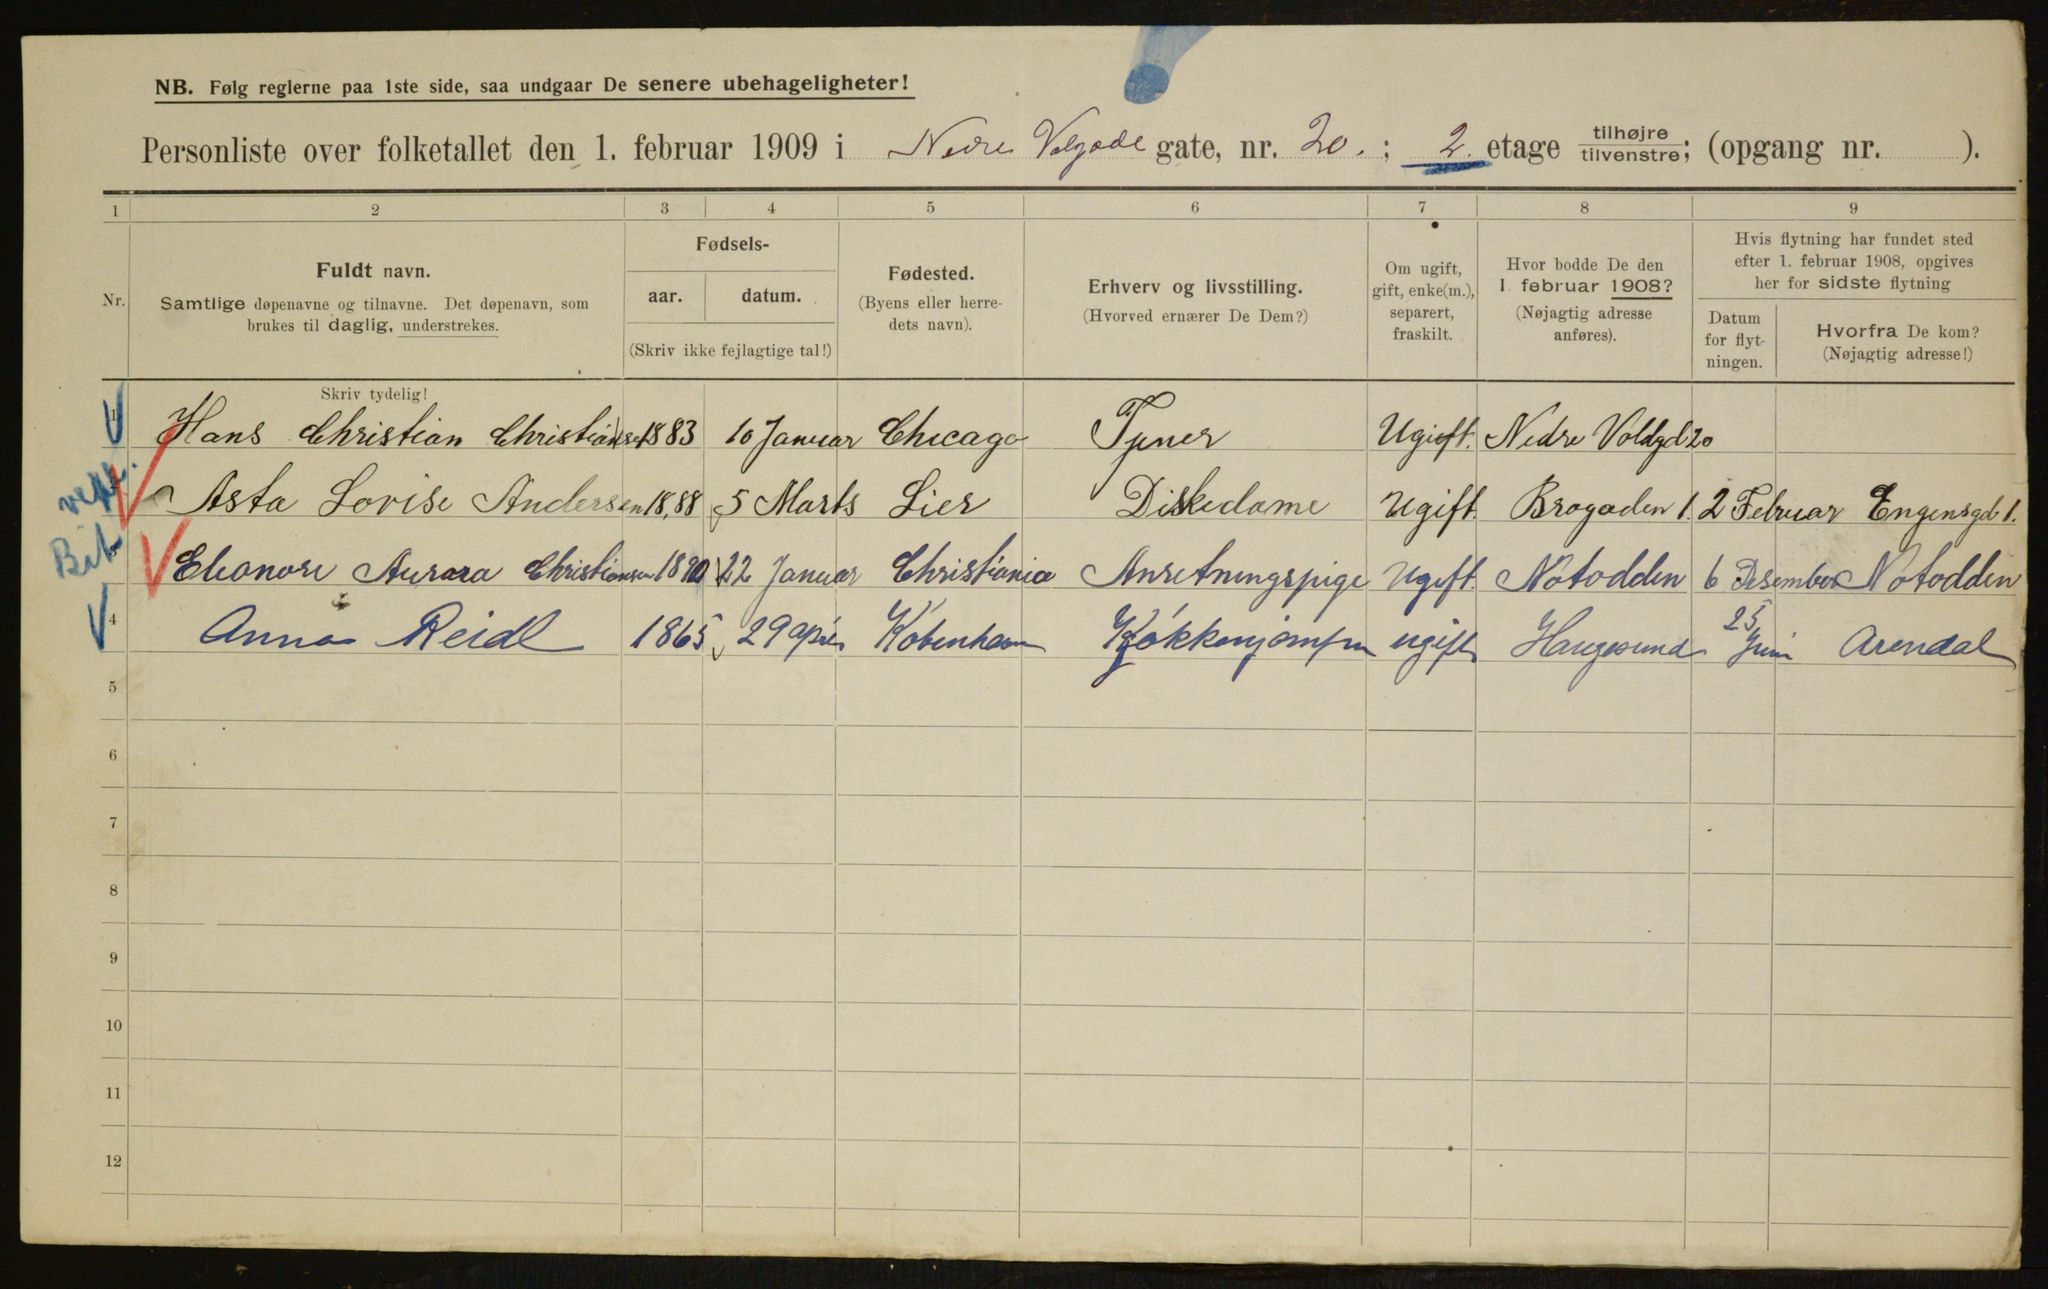 NB. Følg reglerne paa 1ste side, saa undgaar De senere ubehageligheter!
Personliste over folketallet den 1. februar 1909 i Nedre Volgade gate, nr. 20. ; 2. etage tilhøjre / tilvenstre; (opgang nr. ).
1 2 3 4 5 6 7 8 9
Nr.
Fuldt navn.
Samtlige døpenavne og tilnavne. Det døpenavn, som
brukes til daglig, understrekes.
Fødsels-
aar. datum.
(Skriv ikke fejlagtige tal!)
Fødested.
(Byens eller herre-
dets navn).
Erhverv og livsstilling.
(Hvorved ernærer De Dem?)
Om ugift,
gift, enke(m.),
separert,
fraskilt.
Hvor bodde De den
1 februar 1908?
(Nøjagtig adresse
anføres).
Hvis flytning har fundet sted
efter 1. februar 1908, opgives
her for sidste flytning
Datum
for flyt-
ningen.
Hvorfra De kom?
(Nøjagtig adresse!)
Skriv tydelig!
1 Hans Christian Christiansen 1883 10 Januar Chicago Tjener Ugift. Nedre Voldgd 20
2 Asta Lovise Andersen 1888 5 Marts Lier Diskedame Ugift. Brogaden 1. 2 Februar Engensgd 1.
3 Eleonore Aurora Christiansen 1890 22 Januar Christiania Anretningspige Ugift. Notodden 6 Desember Notodden
4 Anna Reidl 1865 29 april København Kjøkkenjomfru ugift Haugesund 25 Juni Arendal
5
6
7
8
9
10
11
12